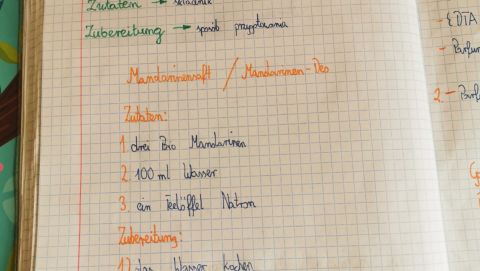 Zutaten → składnik
Zubereitung → sposób przygotowania
Mandarinensaft / Mandarinen-Deo
Zutaten:
1. drei Bio Mandarinen
2. 100 ml Wasser
3. ein Teelöffel Natron
Zubereitung:
1) das Wasser kochen
- EDTA
- Parfum
2 -